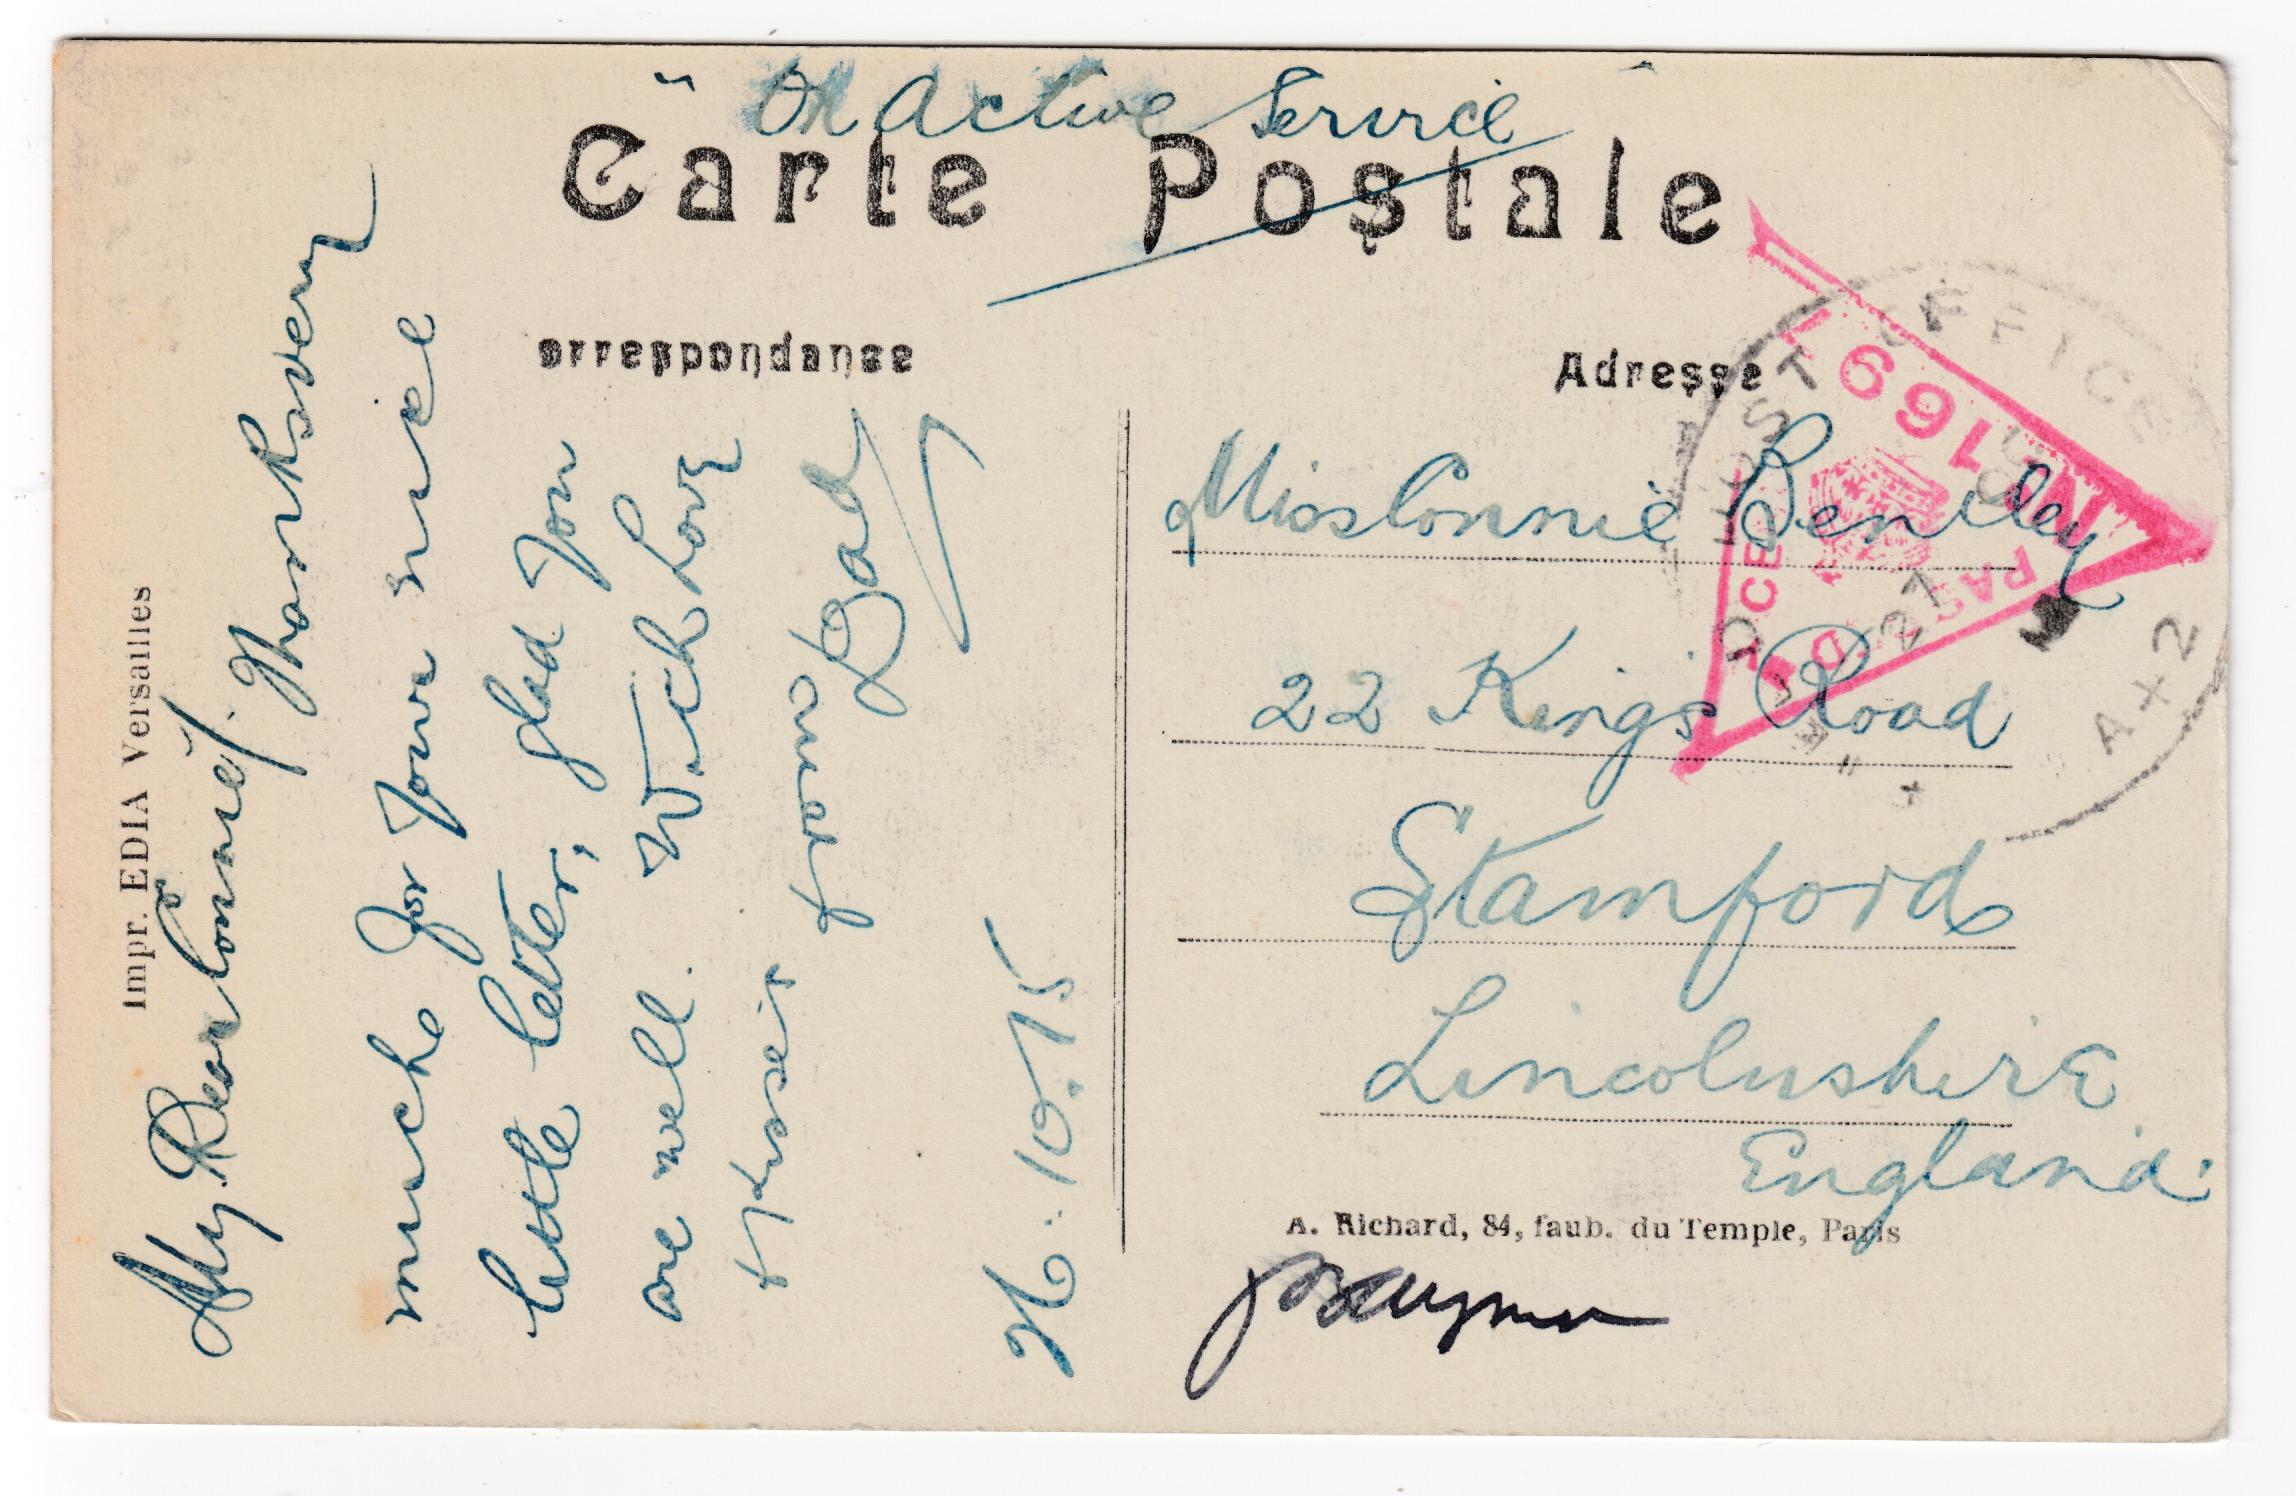 "On Active Service"
Carte Postale
orrespondance
Adresse
My Dear Connie/. Thanks very
much for your nice
little letter, glad you
are well. With love
& kisses
from
Dad
10.15
Impr. EDIA Versailles
Miss Connie Bentley
22 King's Road
Stamford
Lincolnshire
England.
A. Richard, 84, faub. du Temple, Paris
POST OFFICE
1661
PASSED